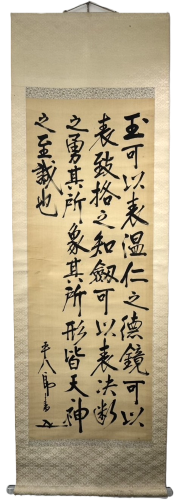 玉可以表温仁之德鏡可以
表致格之知劔可以表决断
之勇其所象其所形皆天神
之至誠也
平八郎書